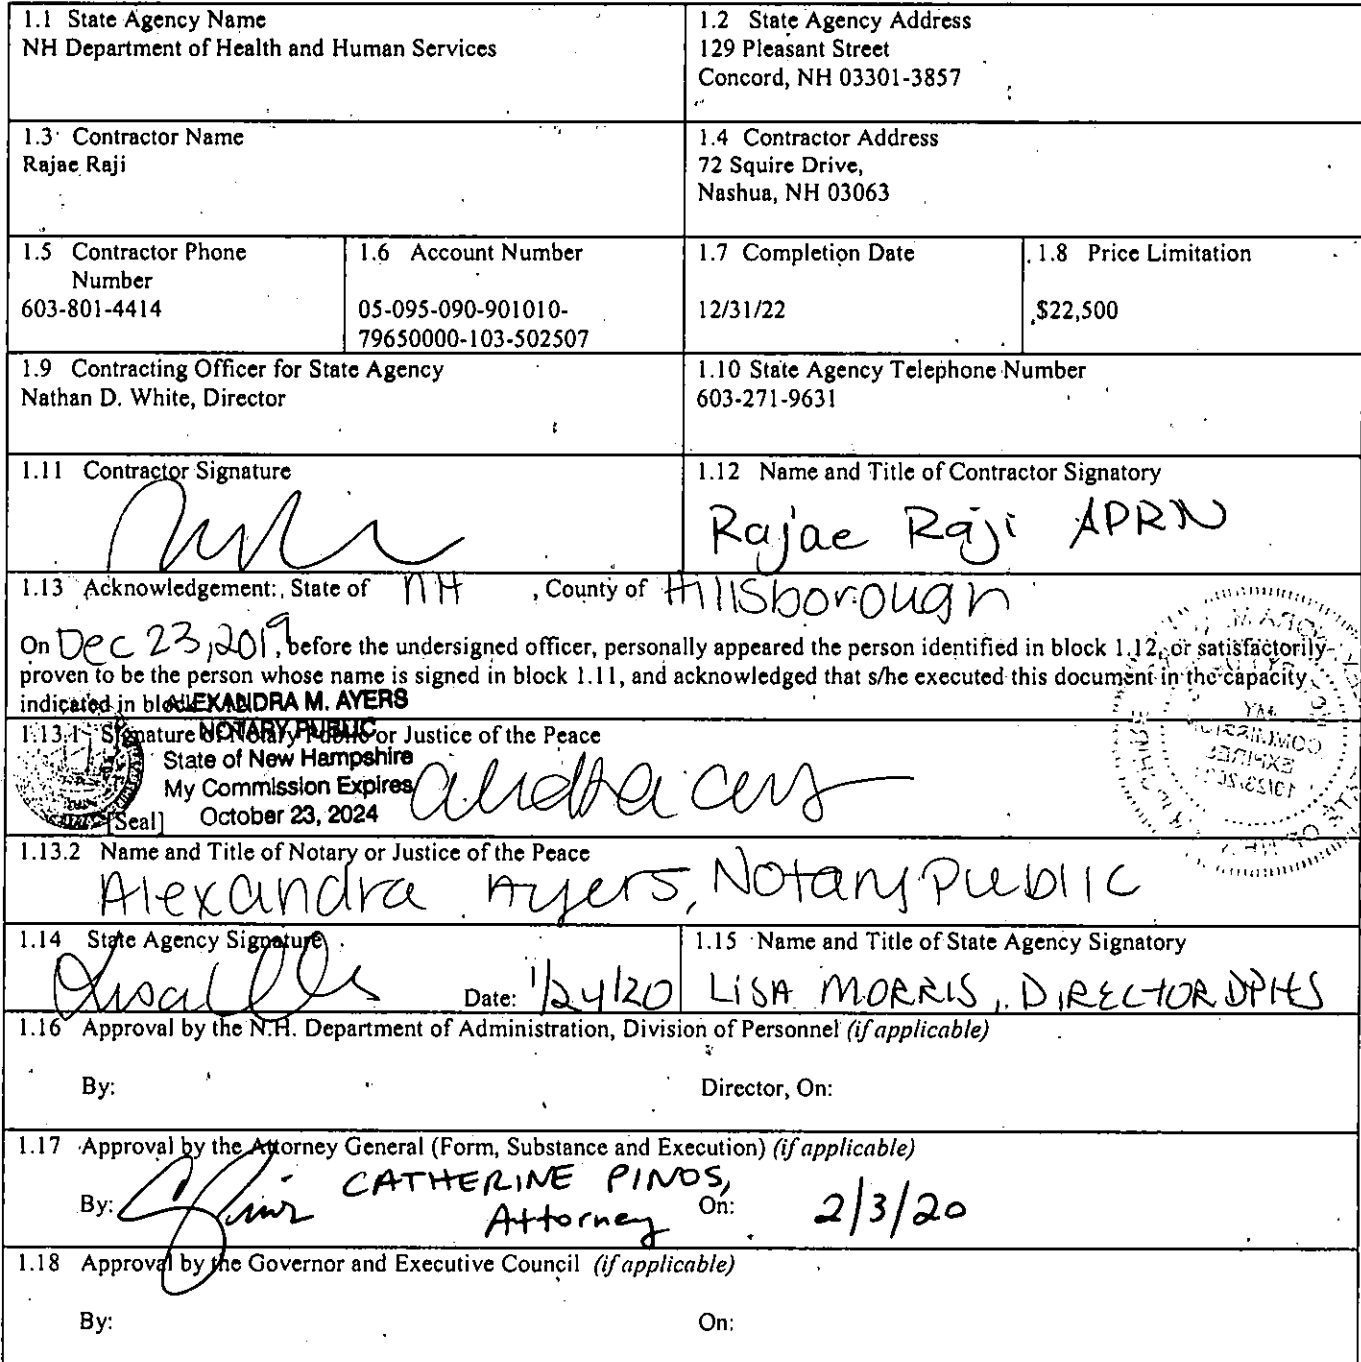 1.1 State Agency Name
NH Department of Health and Human Services
1.2 State Agency Address
129 Pleasant Street
Concord, NH 03301-3857
1.3 Contractor Name
Rajae Raji
1.4 Contractor Address
72 Squire Drive,
Nashua, NH 03063
1.5 Contractor Phone
Number
603-801-4414
1.6 Account Number
05-095-090-901010-
79650000-103-502507
1.7 Completion Date
12/31/22
1.8 Price Limitation
$22,500
1.9 Contracting Officer for State Agency
Nathan D. White, Director
1.10 State Agency Telephone Number
603-271-9631
1.11 Contractor Signature
1.12 Name and Title of Contractor Signatory
Rajae Raji APRN
1.13 Acknowledgement: State of NH , County of Hillsborough
On Dec 23, 2019, before the undersigned officer, personally appeared the person identified in block 1.12, or satisfactorily
proven to be the person whose name is signed in block 1.11, and acknowledged that s/he executed this document in the capacity
indicated in
ALEXANDRA M. AYERS
1.13.1 Signature of Notary Public or Justice of the Peace
NOTARY PUBLIC
State of New Hampshire
My Commission Expires
[Seal] October 23, 2024
MY
COMMISSION
EXPIRES
1.13.2 Name and Title of Notary or Justice of the Peace
Alexandra Ayers, Notary Public
1.14 State Agency Signature
Date: 1/24/20
1.15 Name and Title of State Agency Signatory
LISA MORRIS, DIRECTOR DPHS
1.16 Approval by the N.H. Department of Administration, Division of Personnel (if applicable)
By: Director, On:
1.17 Approval by the Attorney General (Form, Substance and Execution) (if applicable)
By: CATHERINE PINOS,
Attorney On: 2/3/20
1.18 Approval by the Governor and Executive Council (if applicable)
By: On: